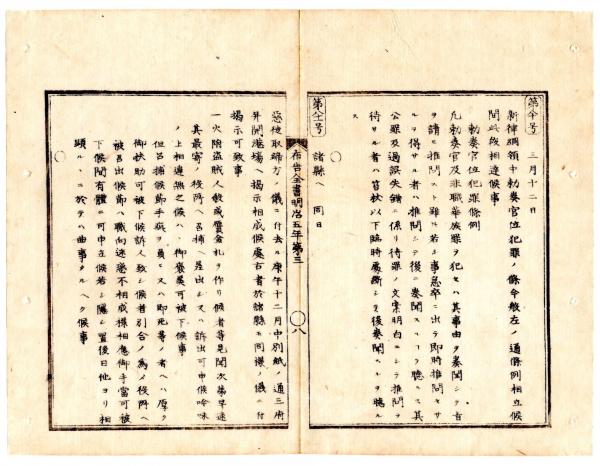 三月十二日
新律綱領中勅奏官位犯罪ノ條今般左ノ通條例相立候
間此段相達候事
勅奏官位犯罪條例
凡勅奏官及非職華族罪ヲ犯セハ其事由ヲ奏聞シテ旨
ヲ請ヒ推問ス ト雖モ若シ事急卒ニ出テ即時推問セサ
ルヲ得サル者ハ推問シテ後ニ奏聞スルヲ聴ス其
公罪及過誤失錯ニ係リ待罪ノ文案明白ニシテ推問ヲ
待サル者ハ笞杖以下臨時處断シテ後奏聞スルヲ聴ル
ス
諸縣ヘ 同日
布告全書明治五年第三
〇八
惡徒取締方ノ儀ニ付去ル庚午十二月中別紙ノ通三府
并開港場ヘ揭示相成候處右者於諸縣モ同様ノ儀ニ付
揭示可致事
一火附盗賊人殺或贋金札ヲ作リ候者等見聞次第早速
其最寄ノ役所ヘ召捕ヘ差出シ又ハ訴出可申候吟味
ノ上相違無之候ハヽ御褒美可被下候事
但召捕候節手疵ヲ負ヒ又ハ即死等ノ者ヘハ厚ク
御扶助可被下候訴人致シ候者引合ノ為メ役所ヘ
被召出候節ハ職向迷惑不相成様相應御手當可被
下候間有體ニ可申立候若シ隱シ置後日他ヨリ相
顕ルヽニ於テハ曲事タルヘク候事